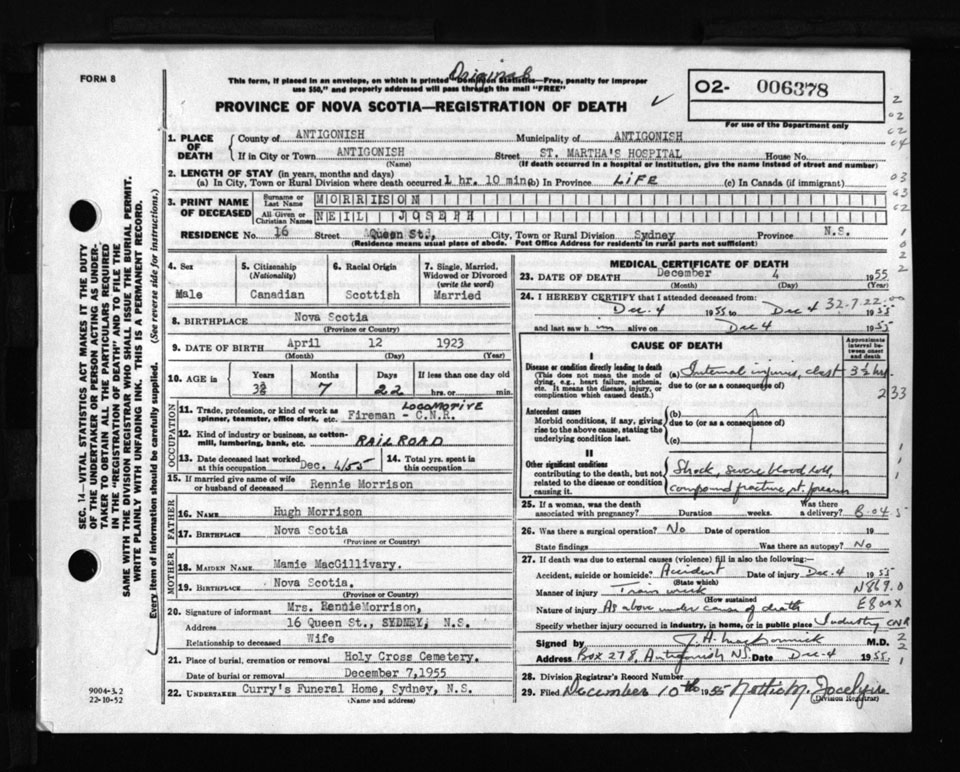 FORM 8
Original
This form, if placed in an envelope, on which is printed "Dominion Statistics—Free, penalty for improper
use $50," and properly addressed will pass through the mail "FREE"
PROVINCE OF NOVA SCOTIA—REGISTRATION OF DEATH ✓
02- 006378
For use of the Department only
1. PLACE OF DEATH
County of ANTIGONISH Municipality of ANTIGONISH
If in City or Town ANTIGONISH Street ST. MARTHA'S HOSPITAL House No.
(Name) (If death occurred in a hospital or institution, give the name instead of street and number)
2. LENGTH OF STAY (in years, months and days)
(a) In City, Town or Rural Division where death occurred 1 hr. 10 min. (b) In Province LIFE (c) In Canada (if immigrant)
3. PRINT NAME OF DECEASED
Surname or Last Name MORRISON
All Given or Christian Names NEIL JOSEPH
RESIDENCE No. 16 Street Queen St., City, Town or Rural Division Sydney Province N.S.
(Residence means usual place of abode. Post Office Address for residents in rural parts not sufficient)
SEC. 14—VITAL STATISTICS ACT MAKES IT THE DUTY
OF THE UNDERTAKER OR PERSON ACTING AS UNDER-
TAKER TO OBTAIN ALL THE PARTICULARS REQUIRED
IN THE "REGISTRATION OF DEATH" AND TO FILE THE
SAME WITH THE DIVISION REGISTRAR WHO SHALL ISSUE THE BURIAL PERMIT.
WRITE PLAINLY WITH UNFADING INK. THIS IS A PERMANENT RECORD.
Every item of information should be carefully supplied. (See reverse side for instructions.)
4. Sex
Male
5. Citizenship (Nationality)
Canadian
6. Racial Origin
Scottish
7. Single, Married, Widowed or Divorced (write the word)
Married
8. BIRTHPLACE Nova Scotia
(Province or Country)
9. DATE OF BIRTH April 12 1923
(Month) (Day) (Year)
10. AGE in Years Months Days If less than one day old
32 7 22 hrs. or min.
OCCUPATION
11. Trade, profession, or kind of work as LOCOMOTIVE
spinner, teamster, office clerk, etc. Fireman - C.N.R.
12. Kind of industry or business, as cotton-
mill, lumbering, bank, etc. RAILROAD
13. Date deceased last worked at this occupation Dec. 4/55
14. Total yrs. spent in this occupation
15. If married give name of wife
or husband of deceased Rennie Morrison
FATHER
16. NAME Hugh Morrison
17. BIRTHPLACE Nova Scotia
(Province or Country)
MOTHER
18. MAIDEN NAME Mamie MacGillivary.
19. BIRTHPLACE Nova Scotia.
(Province or Country)
20. Signature of informant Mrs. Rennie Morrison,
Address 16 Queen St., SYDNEY, N.S.
Relationship to deceased Wife
21. Place of burial, cremation or removal Holy Cross Cemetery.
Date of burial or removal December 7,1955
22. UNDERTAKER Curry's Funeral Home, Sydney, N.S.
(Name and address)
9004-3.2
22-10-52
MEDICAL CERTIFICATE OF DEATH
23. DATE OF DEATH December 4 1955
(Month) (Day) (Year)
24. I HEREBY CERTIFY that I attended deceased from:
Dec. 4 1955 to Dec 4 1955
32-7-22-00
and last saw him alive on Dec 4 1955
CAUSE OF DEATH
Approximate interval between onset and death
I
Disease or condition directly leading to death
(This does not mean the mode of
dying, e.g., heart failure, asthenia,
etc. It means the disease, injury, or
complication which caused death.)
(a) Internal injuries, chest 3½ hrs.
due to (or as a consequence of)
Antecedent causes
Morbid conditions, if any, giving
rise to the above cause, stating the
underlying condition last.
(b)
due to (or as a consequence of)
(c)
II
Other significant conditions
contributing to the death, but not
related to the disease or condition
causing it.
Shock, severe blood loss
compound fracture rt. forearm
233
25. If a woman, was the death Was there
associated with pregnancy? Duration weeks. a delivery?
26. Was there a surgical operation? No Date of operation 19
State findings Was there an autopsy? No
27. If death was due to external causes (violence) fill in also the following:
Accident, suicide or homicide? Accident Date of injury Dec. 4 1955
(State which)
Manner of injury Train wreck N869.0
(How sustained
Nature of injury As above under cause of death E800X
Specify whether injury occurred in industry, in home, or in public place Industry CNR
Signed by J. A. MacCormick M.D.
Address Box 278, Antigonish NS. Date Dec-4 1955.
28. Division Registrar's Record Number
29. Filed December 10th 1955
(Division Registrar)